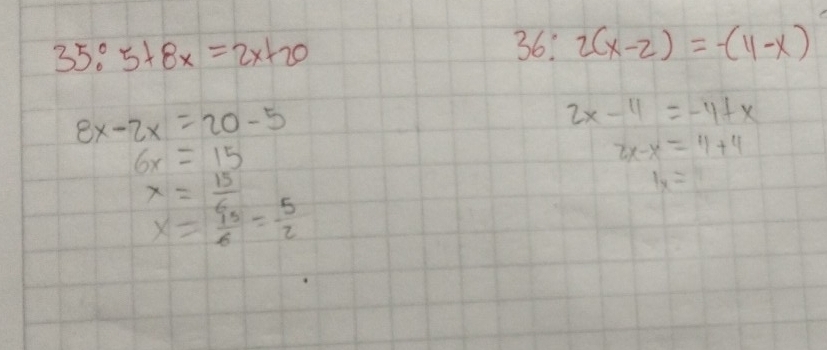 35: 5+8x = 2x+20
8x-2x = 20-5
6x = 15
x = 15/6
x = 15/6 = 5/2
36: 2(x-2) = -(4-x)
2x-4 = -4+x
2x-x = 4+4
1x =